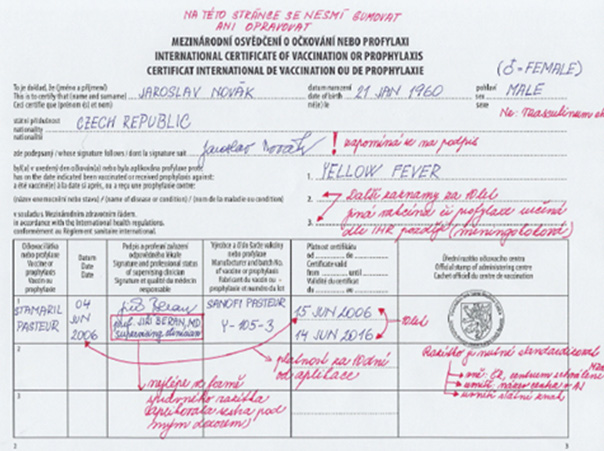 NA TÉTO STRÁNCE SE NESMÍ GUMOVAT
ANI OPRAVOVAT
MEZINÁRODNÍ OSVĚDČENÍ O OČKOVÁNÍ NEBO PROFYLAXI
INTERNATIONAL CERTIFICATE OF VACCINATION OR PROPHYLAXIS
CERTIFICAT INTERNATIONAL DE VACCINATION OU DE PROPHYLAXIE
(♂=FEMALE)
To je doklad, že (jméno a příjmení)
This is certify that (name and surname)
Ceci certifie que (prénom (s) et nom)
JAROSLAV NOVÁK
datum narození
date of birth
né(e) le
21 JAN 1960
pohlaví
sex
sexe
MALE
Ne:
státní příslušnost
nationality
nationalité
CZECH REPUBLIC
zde podepsaný / whose signature follows / dont la signature suit
Jaroslav Novák
! zapomíná se na podpis
byl(a) v uvedený den očkován(a) nebo byla aplikována profylaxe proti
has on the date indicated been vaccinated or received prophylaxis against:
a été vacciné(e) à la date si après, ou a reçu une prophylaxie contre:
1. YELLOW FEVER
(název onemocnění nebo stavu) / (name of disease or condition) / (nom de la maladie ou condition)
2. Další záznamy za 10 let
v souladu s Mezinárodním zdravotním řádem.
in accordance with the International health regulations.
conformément au Règlement sanitaire international.
3. jiná vakcína či profylaxe určená
dle IHR později (meningoková)
Očkovací látka
nebo profylaxe
Vaccine or
prophylaxis
Vaccin ou
prophylaxie
Datum
Date
Date
Podpis a profesní zařazení
odpovědného lékaře
Signature and professional status
of supervising clinician
Signature et qualité du médecin
responsable
Výrobce a číslo šarže vakcíny
nebo profylaxe
Manufacturer and batch No.
of vaccine or prophylaxis
Fabricant du vaccin ou
prophylaxie et numéro du lot
Platnost certifikátu
od do
Certificate valid
from until
Validité du certificat
du au
Úřední razítko očkovacího centra
Official stamp of administering centre
Cachet officiel du centre de vaccination
1
STAMARIL
PASTEUR
04
JUN
2006
Jiří Beran
prof. JIŘÍ BERAN, MD
supervising clinician
SANOFI PASTEUR
Y-105-3
15 JUN 2006
14 JUN 2016
10 let
2
platnost za 10 dní
od aplikace
Razítko je nutné standardizovat
3
nejlépe ve formě
úředního razítka
(aplikovala sestra pod
mým dozorem)
umíst. název centra v AJ
umístit státní znak
2
3